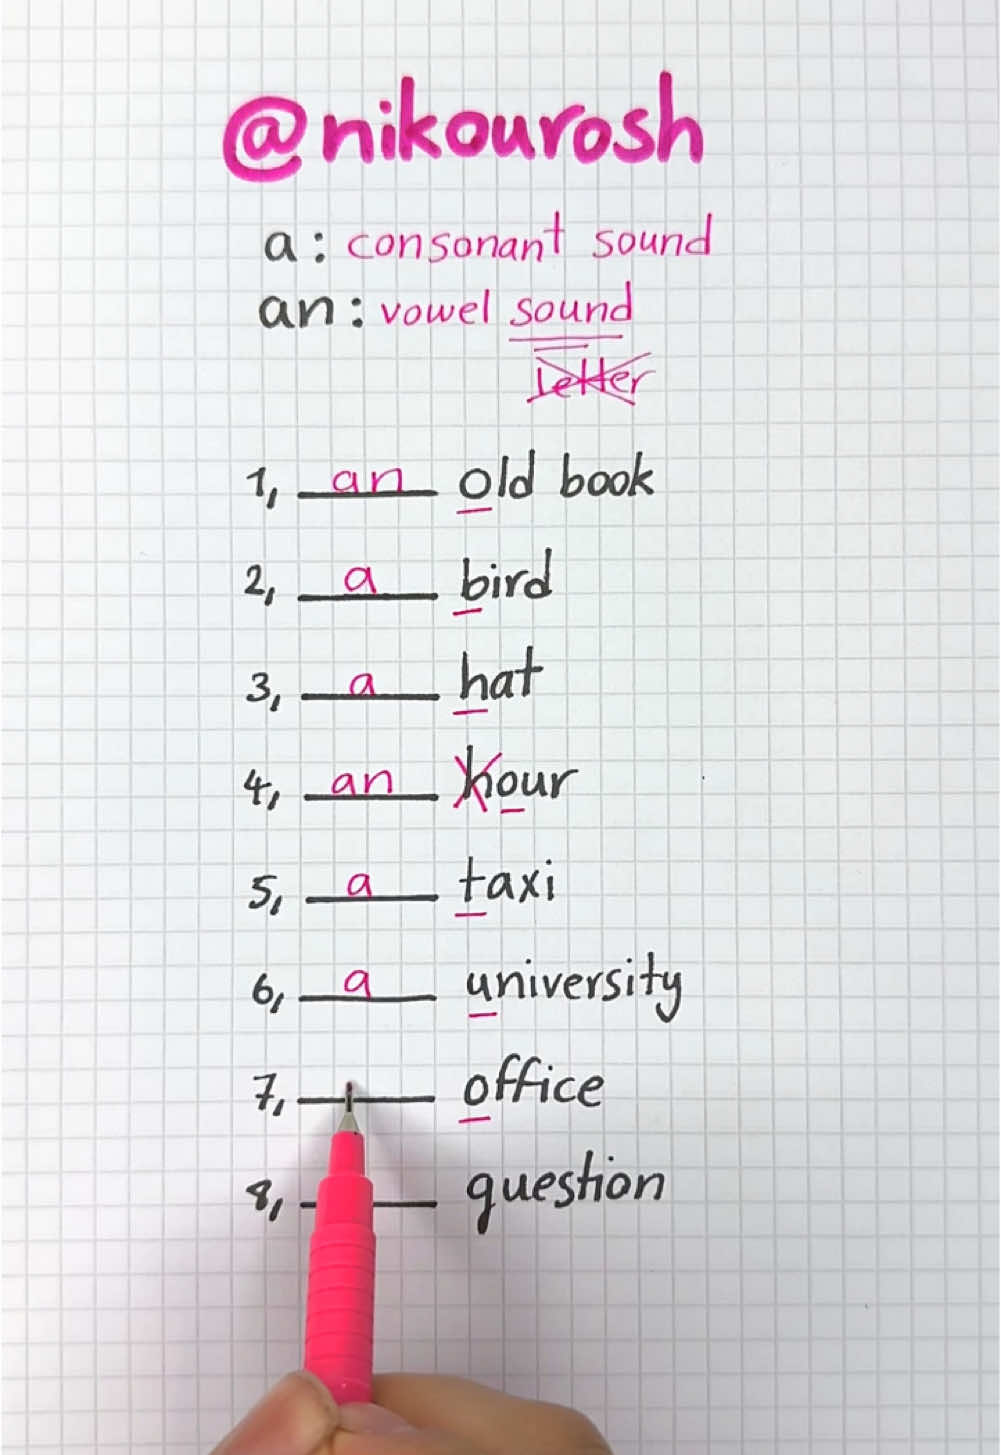 @nikourosh
a: consonant sound
an: vowel sound
letter
1, an old book
2, a bird
3, a hat
4, an hour
5, a taxi
6, a university
7, ____ office
8, ____ question